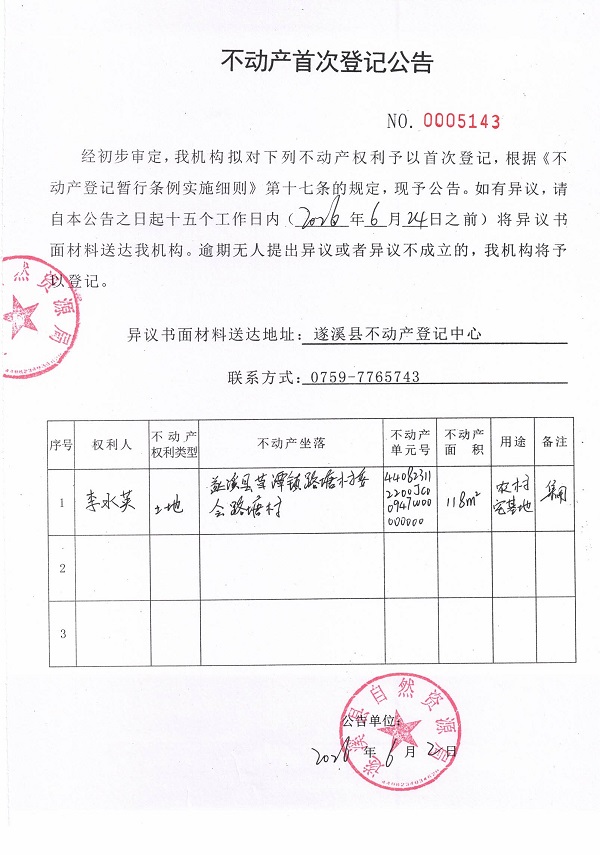 不动产首次登记公告
NO. 0005143
经初步审定，我机构拟对下列不动产权利予以首次登记，根据《不
动产登记暂行条例实施细则》第十七条的规定，现予公告。如有异议，请
自本公告之日起十五个工作日内（2026年6月24日之前）将异议书
面材料送达我机构。逾期无人提出异议或者异议不成立的，我机构将予
以登记。
异议书面材料送达地址：遂溪县不动产登记中心
联系方式：0759-7765743
序号 权利人 不动产权利类型 不动产坐落 不动产单元号 不动产面积 用途 备注
1 李水英 土地 遂溪县草潭镇路塘村委会路塘村 118m² 农村宅基地 集用
2
3
遂溪县自然资源局
公告单位：
2026年6月2日
然资源局